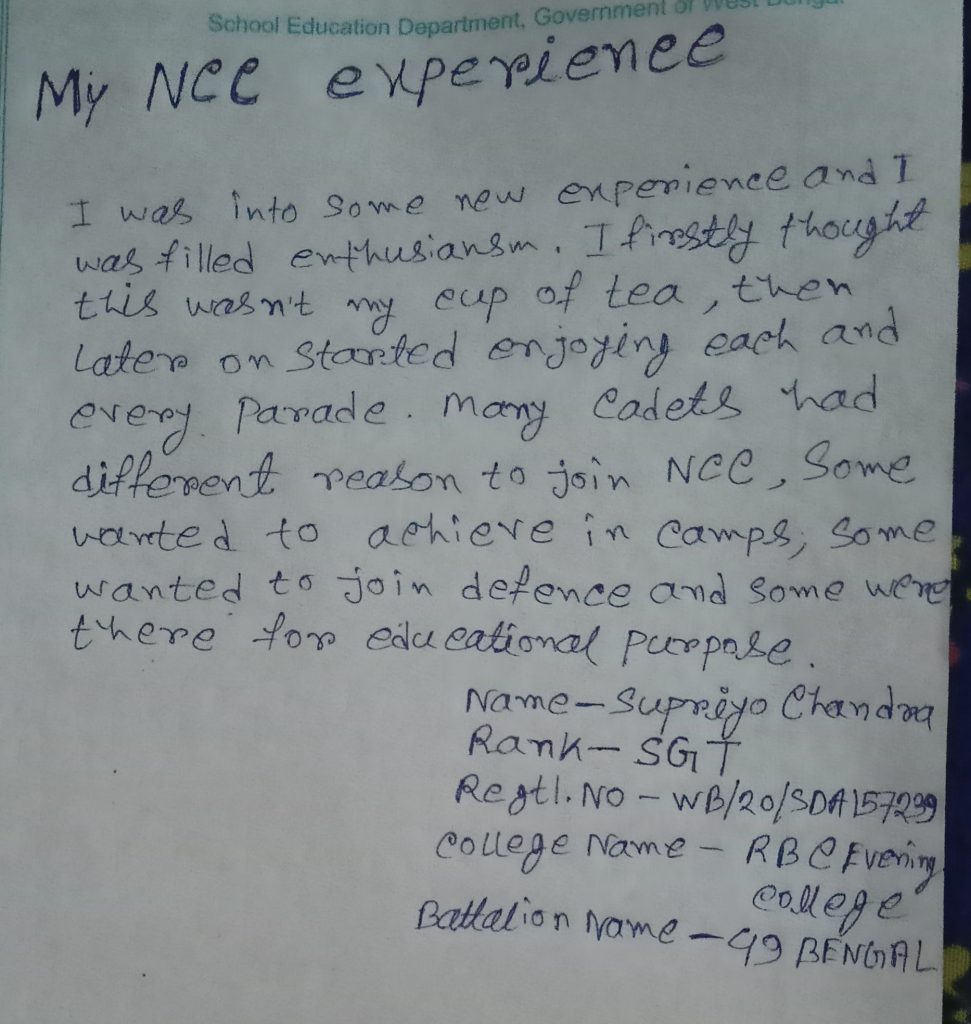 School Education Department, Government of West Bengal
My NCC experience
I was into some new experience and I
was filled enthusiansm. I firstly thought
this wasn't my cup of tea, then
Later on Started enjoying each and
every. Parade. Many Cadets had
different reason to join NCC, Some
wanted to achieve in camps, Some
wanted to join defence and some were
there for educational purpose.
Name-Supriyo Chandra
Rank-SGT
Regtl.No-WB/20/SDA157299
College Name - RBC Evening
College
Battalion Name-49 BENGAL